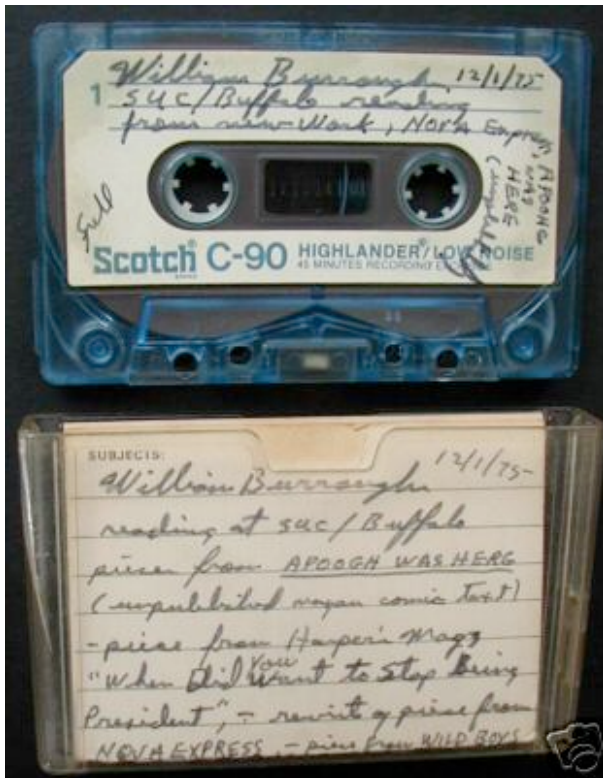 William Burroughs 12/1/75
1 SUC/Buffalo reading
from new work, NOVA Express, APOOHG
WAS
HERE
(complete)
Full
Scotch® C-90 HIGHLANDER®/LOW NOISE
BRAND 45 MINUTES RECORDING EACH SIDE
SUBJECTS:
12/1/75-
William Burroughs
reading at SUC/Buffalo
pieces from APOOGH WAS HERE
(unpublished mayan comic text)
-piece from Harper's Magz
"When Did You Want to Stop Being
President", - rewrit of piece from
NOVA EXPRESS, - piece from WILD BOYS